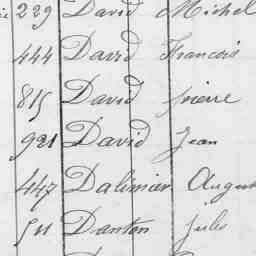 229 David Michel
444 David Francois
815 David pierre
921 David Jean
447 Dalimier August
511 Danton Jules